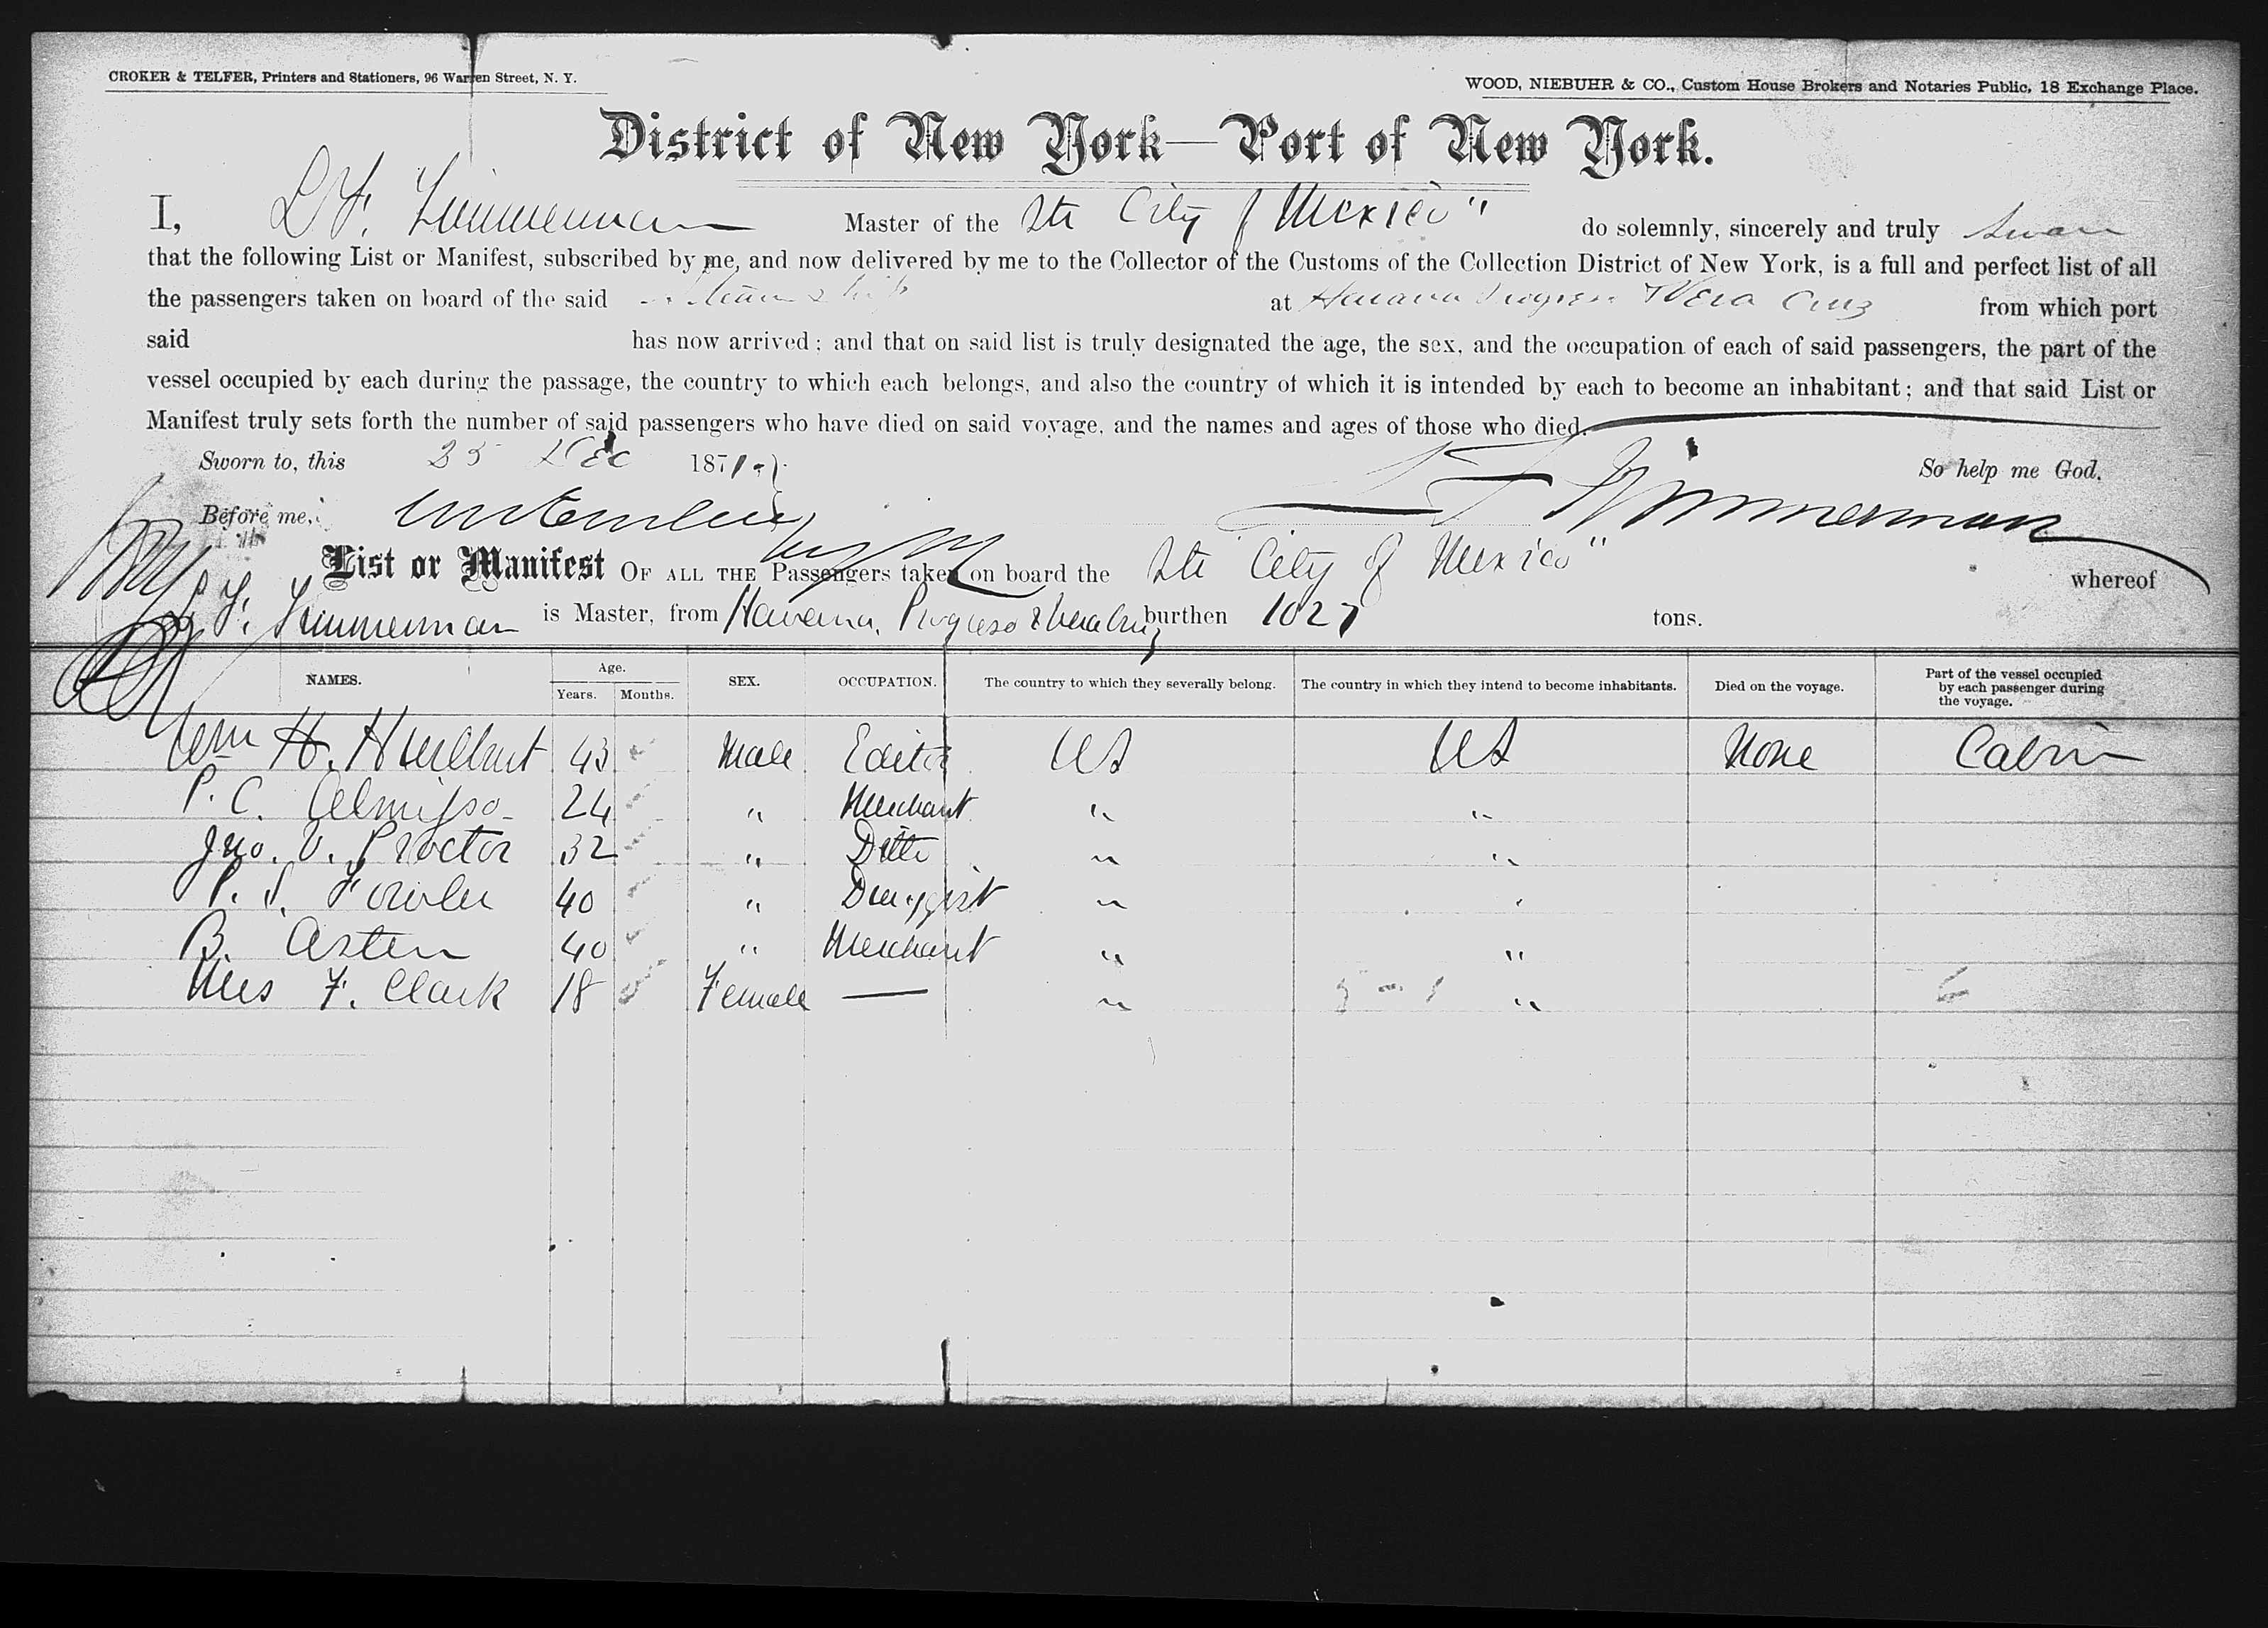 CROKER & TELFER, Printers and Stationers, 96 Warren Street, N. Y.
WOOD, NIEBUHR & CO., Custom House Brokers and Notaries Public, 18 Exchange Place.
District of New York—Port of New York.
I, L F. Zimmerman Master of the Str City of Mexico" do solemnly, sincerely and truly Swear
that the following List or Manifest, subscribed by me, and now delivered by me to the Collector of the Customs of the Collection District of New York, is a full and perfect list of all
the passengers taken on board of the said Steamship at Havana Progreso & Vera Cruz from which port
said has now arrived; and that on said list is truly designated the age, the sex, and the occupation of each of said passengers, the part of the
vessel occupied by each during the passage, the country to which each belongs, and also the country of which it is intended by each to become an inhabitant; and that said List or
Manifest truly sets forth the number of said passengers who have died on said voyage, and the names and ages of those who died.
Sworn to, this Dec 187 So help me God,
Before me, L F Zimmerman
List or Manifest OF ALL THE Passengers taken on board the Str "City of Mexico" whereof
L F. Zimmerman is Master, from Havana, Progreso & Vera Cruz burthen 1027 tons.
NAMES. Age. Years. Months. SEX. OCCUPATION. The country to which they severally belong. The country in which they intend to become inhabitants. Died on the voyage. Part of the vessel occupied by each passenger during the voyage.
Wm H. Hurlbut 43 Male Editor US US None Cabin
P. C. 24 " Merchant " "
Jno. V. Proctor 32 " Ditto " "
P. S. Fowler 40 " Druggist " "
B. Asten 40 " Merchant " "
F. Clark 18 Female — " "